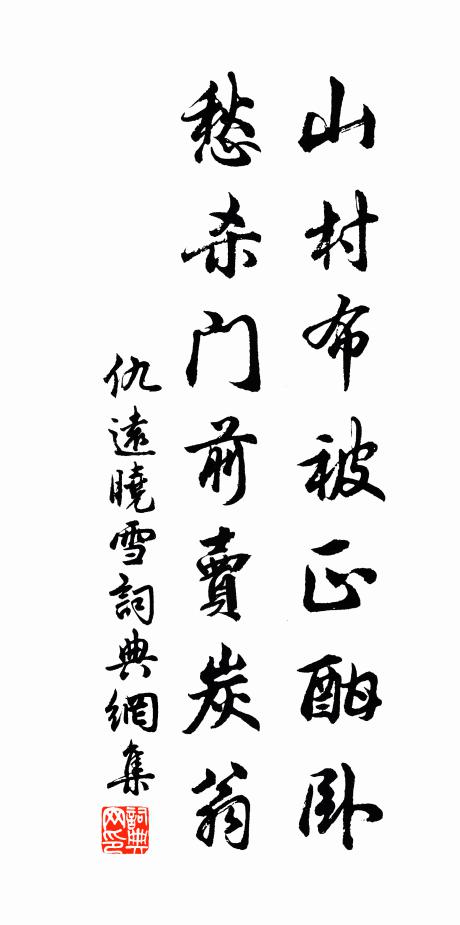 山村布被正酣卧
愁杀门前賣炭翁
仇遠曉雪詞典網集
詞典网印